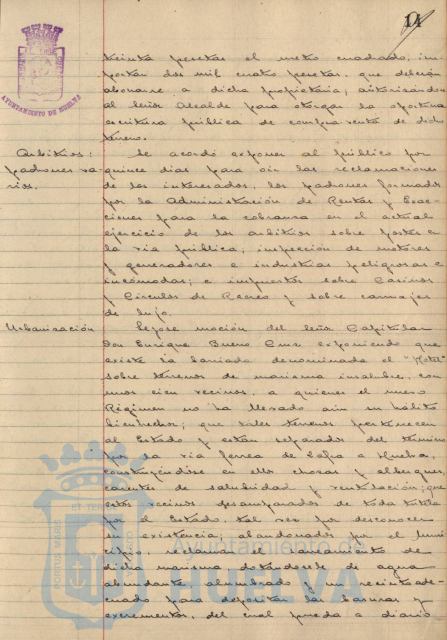 14
AYUNTAMIENTO DE HUELVA
treinta pesetas el metro cuadrado, im-
portan dos mil cuatro pesetas, que deberán
abonarse a dicha propietaria, autorizándose
al Señor Alcalde para otorgar la oportuna
escritura pública de compra-venta de dicho
terreno.
Arbitrios: padrones va-
rios.
Se acordó exponer al público por
quince días para oir las reclamaciones
de los interesados, los padrones formados
por la Administración de Rentas y Exac-
ciones para la cobranza en el actual
ejercicio de los arbitrios sobre postes en
la vía pública, inspección de motores
y generadores e industrias peligrosas e
incómodas; e impuestos sobre Casinos
y Círculos de Recreo y sobre carruajes
de lujo.
Urbanización
Leyose moción del Señor Capitular
Don Enrique Bueno Cruz exponiendo que
existe la barriada denominada el "Hotel"
sobre terrenos de marisma insalubre, con
unos cien vecinos, a quienes el nuevo
Régimen no ha llevado aún su hálito
bienhechor; que tales terrenos pertenecen
al Estado y están separados del término
por la vía férrea de Zafra a Huelva,
construyéndose en ellos chozas y albergues
carentes de salubridad y ventilación; que
estos vecinos desamparados de toda tutela
por el Estado, tal vez por desconocer
su existencia, abandonados por el Muni-
cipio, reclaman el saneamiento de
dicha marisma dotándosele de agua
abundante alumbrado y un recinto ade-
cuado para depositar las basuras y
excrementos, del cual pueda a diario
Ayuntamiento de
HUELVA
PORTUS MARIS ET TERRAE CUSTODIA